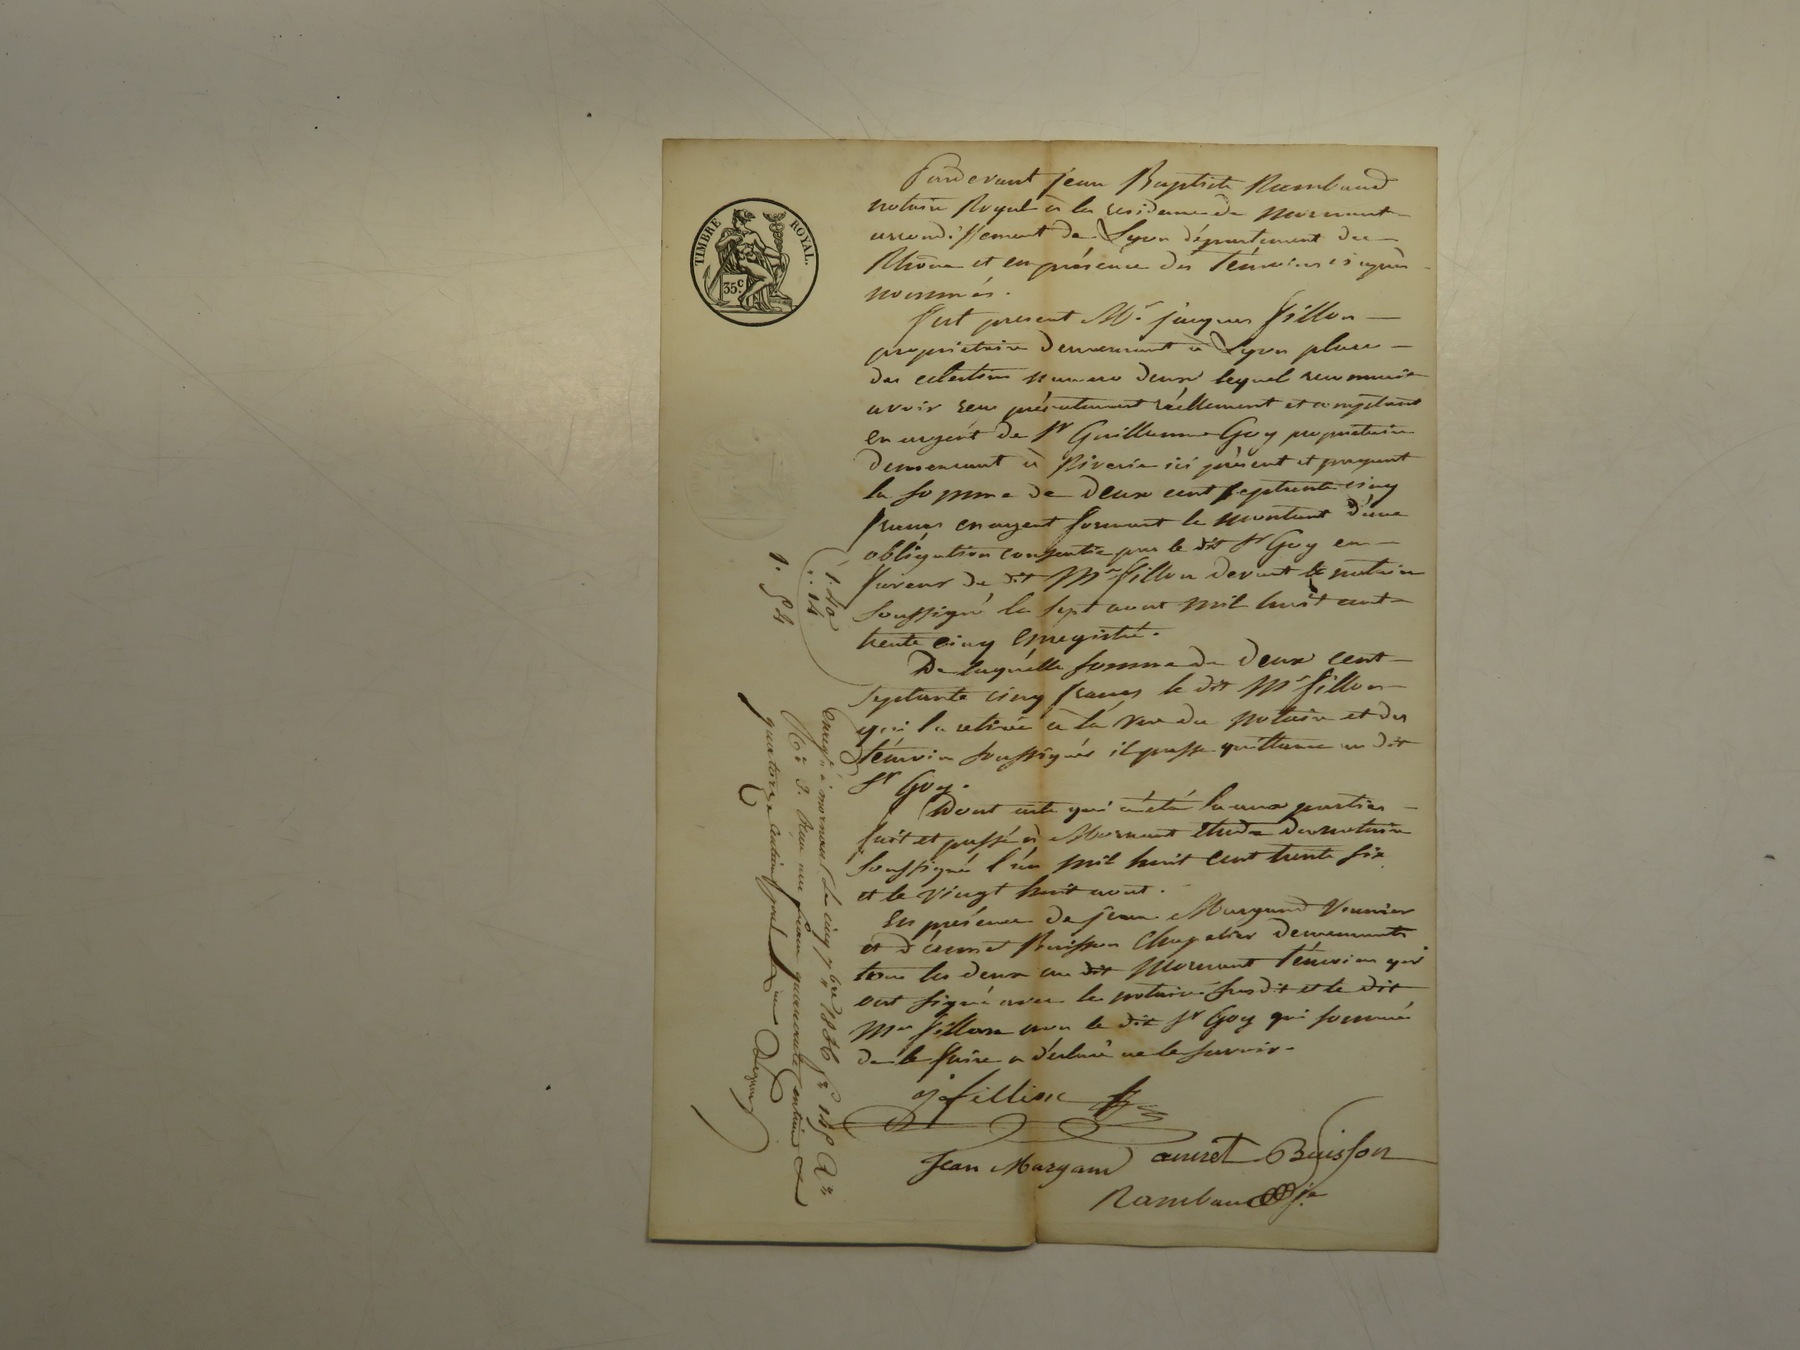 TIMBRE ROYAL.
35c
Pardevant jean Baptiste Rambaud
notaire Royal à la residence de Mornant
arrondissement de Lyon département du
Rhône et en présence des témoins ci après
nommés.
fut present Mr. jacques fillon
propriétaire demeurant à Lyon place
des celestins numero deux lequel reconnait
avoir reçu présentement réellement et comptant
en argent de Sr Guillaume Goy propriétaire
demeurant à Riverie ici présent et payant
la somme de deux cent septante cinq
francs en argent formant le montant d'une
obligation consentie par le dit Sr Goy en
faveur du dit Mr fillon devant le notaire
soussigné le sept aout mil huit cent
trente cinq enregistré.
De laquelle somme de deux cent
septante cinq francs le dit Mr fillon
qui l'a retirée à la vue du notaire et des
témoins soussignés il passe quittance au dit
Sr Goy.
Dont acte qui a été lu aux parties
fait et passé à Mornant étude du notaire
soussigné l'an mil huit cent trente six
et le vingt huit aout.
En présence de jean Margand
et d'annet Buisson Chapelier demeurants
tous les deux au dit Mornant témoins qui
ont signé avec le notaire susdit et le dit
Mr fillon non le dit Sr Goy qui sommé
de le faire a déclaré ne le savoir.
j fillion
Jean Margand annet Buisson
Rambaud
1. 40
. 14
1. 54
Enregté à mornant le cinq 7bre 1836 fo 145 Ro
Co 3. Reçu un franc quarante centimes et
quatorze centimes pour